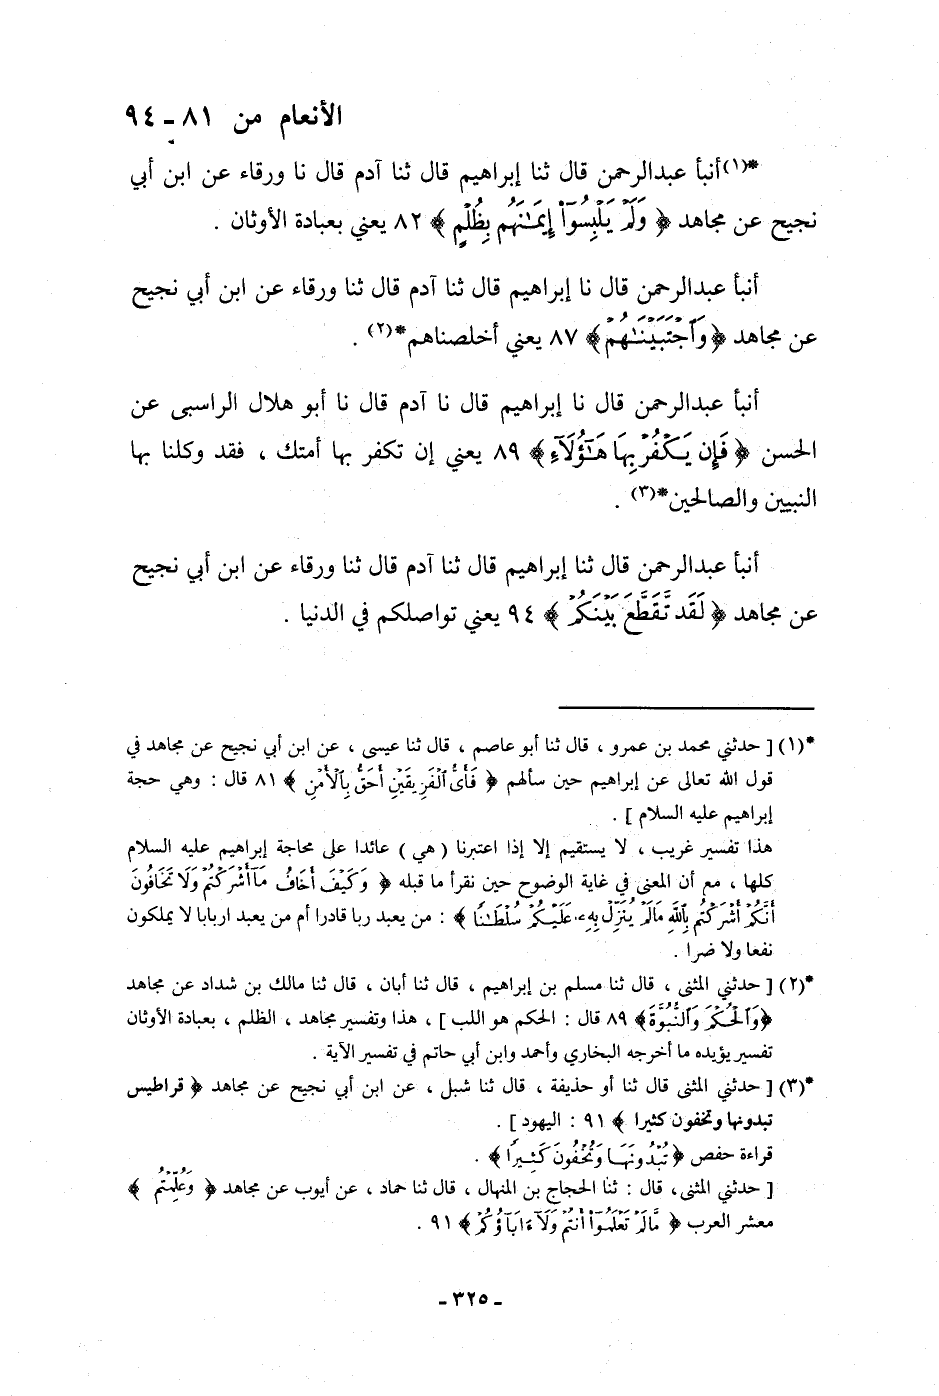 الأنعام من ٨١ ـ ٩٤
*(١) أنبأ عبدالرحمن قال ثنا إبراهيم قال ثنا آدم قال نا ورقاء عن ابن أبي
نجيح عن مجاهد ﴿ وَلَمْ يَلْبِسُوٓا۟ إِيمَـٰنَهُم بِظُلْمٍ ﴾ ٨٢ يعني بعبادة الأوثان .
أنبأ عبدالرحمن قال نا إبراهيم قال ثنا آدم قال ثنا ورقاء عن ابن أبي نجيح
عن مجاهد ﴿ وَٱجْتَبَيْنَـٰهُمْ ﴾ ٨٧ يعني أخلصناهم*(٢) .
أنبأ عبدالرحمن قال نا إبراهيم قال نا آدم قال نا أبو هلال الراسبى عن
الحسن ﴿ فَإِن يَكْفُرْ بِهَا هَـٰٓؤُلَآءِ ﴾ ٨٩ يعني إن تكفر بها أمتك ، فقد وكلنا بها
النبيين والصالحين*(٣) .
أنبأ عبدالرحمن قال ثنا إبراهيم قال ثنا آدم قال ثنا ورقاء عن ابن أبي نجيح
عن مجاهد ﴿ لَقَد تَّقَطَّعَ بَيْنَكُمْ ﴾ ٩٤ يعني تواصلكم في الدنيا .
*(١) [ حدثني محمد بن عمرو ، قال ثنا أبو عاصم ، قال ثنا عيسى ، عن ابن أبي نجيح عن مجاهد في
قول الله تعالى عن إبراهيم حين سألهم ﴿ فَأَىُّ ٱلْفَرِيقَيْنِ أَحَقُّ بِٱلْأَمْنِ ﴾ ٨١ قال : وهي حجة
إبراهيم عليه السلام ] .
هذا تفسير غريب ، لا يستقيم إلا إذا اعتبرنا ( هي ) عائدا على محاجة إبراهيم عليه السلام
كلها ، مع أن المعنى في غاية الوضوح حين نقرأ ما قبله ﴿ وَكَيْفَ أَخَافُ مَآ أَشْرَكْتُمْ وَلَا تَخَافُونَ
أَنَّكُمْ أَشْرَكْتُم بِٱللَّهِ مَالَمْ يُنَزِّلْ بِهِۦ عَلَيْكُمْ سُلْطَـٰنًا ﴾ : من يعبد ربا قادرا أم من يعبد اربابا لا يملكون
نفعا ولا ضرا .
*(٢) [ حدثني المثنى ، قال ثنا مسلم بن إبراهيم ، قال ثنا أبان ، قال ثنا مالك بن شداد عن مجاهد
﴿وَٱلْحُكْمَ وَٱلنُّبُوَّةَ﴾ ٨٩ قال : الحكم هو اللب ] ، هذا وتفسير مجاهد ، الظلم ، بعبادة الأوثان
تفسير يؤيده ما أخرجه البخاري وأحمد وابن أبي حاتم في تفسير الآية .
*(٣) [ حدثني المثنى قال ثنا أو حذيفة ، قال ثنا شبل ، عن ابن أبي نجيح عن مجاهد ﴿ قراطيس
تبدونها وتخفون كثيرا ﴾ ٩١ : اليهود ] .
قراءة حفص ﴿ تُبْدُونَهَا وَتُخْفُونَ كَثِيرًا ﴾ .
[ حدثني المثنى، قال : ثنا الحجاج بن المنهال ، قال ثنا حماد ، عن أيوب عن مجاهد ﴿ وَعُلِّمْتُم ﴾
معشر العرب ﴿ مَّالَمْ تَعْلَمُوٓا۟ أَنتُمْ وَلَآ ءَابَآؤُكُمْ ﴾ ٩١ .
ـ ٣٢٥ ـ